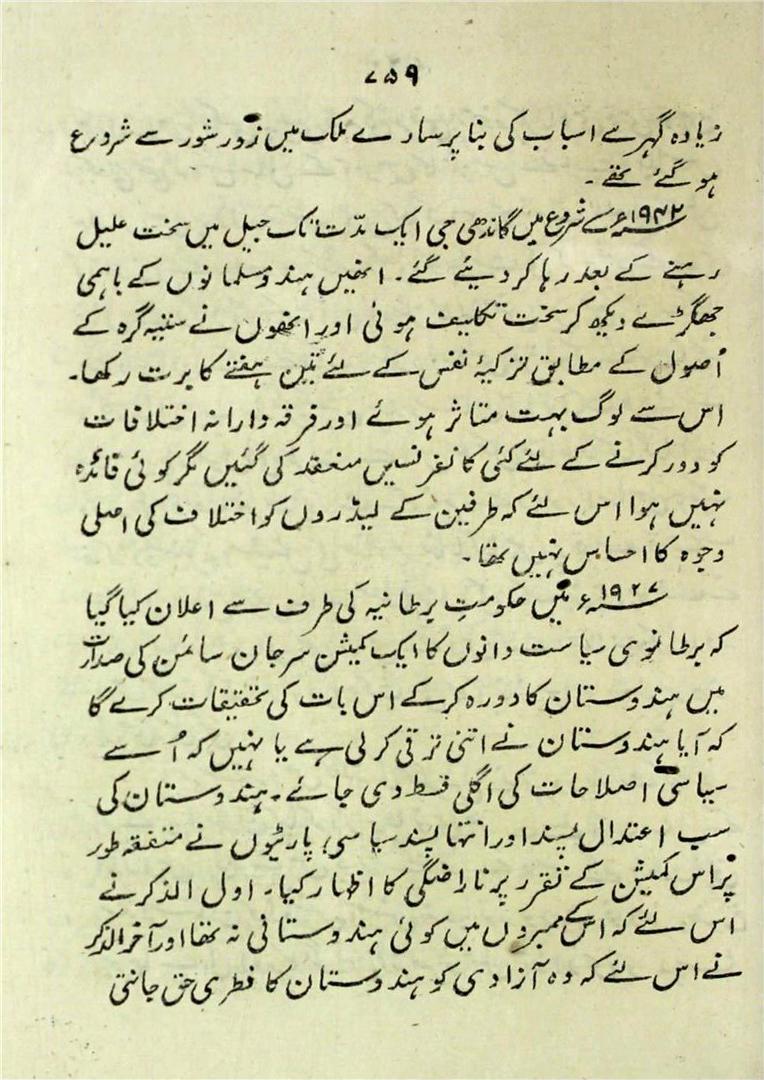 ۷۵۹
زیادہ گہرے اسباب کی بنا پر سارے ملک میں زور شور سے شروع
ہو گئے تھے۔
۱۹۴۲ء کے شروع میں گاندھی جی ایک مدّت تک جیل میں سخت علیل
رہنے کے بعد رہا کر دیئے گئے۔ انھیں ہندو مسلمانوں کے باہمی
جھگڑے دیکھ کر سخت تکلیف ہوئی اور انھوں نے ستیہ گرہ کے
اُصول کے مطابق تزکیۂ نفس کے لئے تین ہفتے کا برت رکھا۔
اس سے لوگ بہت متاثر ہوئے اور فرقہ دارانہ اختلافات
کو دور کرنے کے لئے کئی کانفرنسیں منعقد کی گئیں مگر کوئی فائدہ
نہیں ہوا اس لئے کہ طرفین کے لیڈروں کو اختلاف کی اصلی
وجوہ کا احساس نہیں تھا۔
۱۹۲۷ء میں حکومتِ برطانیہ کی طرف سے اعلان کیا گیا
کہ برطانوی سیاست دانوں کا ایک کمیشن سر جان سائمن کی صدارت
میں ہندوستان کا دورہ کر کے اس بات کی تحقیقات کرے گا
کہ آیا ہندوستان نے اتنی ترقی کر لی ہے یا نہیں کہ اُسے
سیاسی اصلاحات کی اگلی قسط دی جائے۔ ہندوستان کی
سب اعتدال پسند اور انتہا پسند سیاسی پارٹیوں نے متفقہ طور
پر اس کمیشن کے تقرر پر ناراضگی کا اظہار کیا۔ اول الذکر نے
اس لئے کہ اس کے ممبروں میں کوئی ہندوستانی نہ تھا اور آخر الذکر
نے اس لئے کہ وہ آزادی کو ہندوستان کا فطری حق جانتی